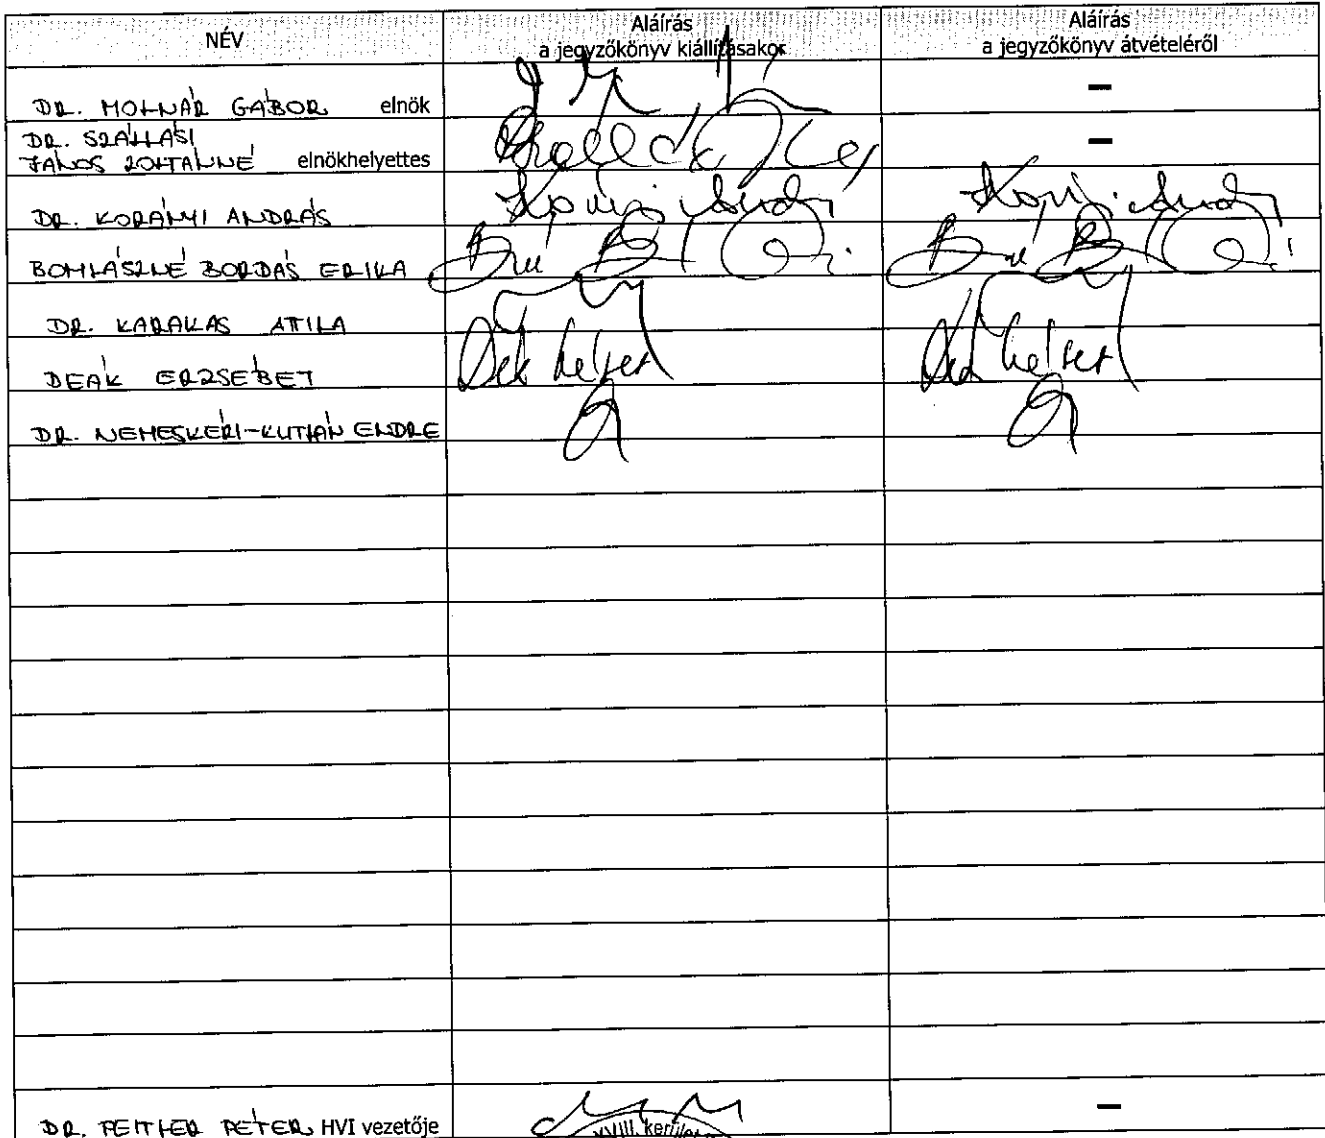 NÉV
Aláírás
a jegyzőkönyv kiállításakor
Aláírás
a jegyzőkönyv átvételéről
DR. MOLNÁR GÁBOR elnök
–
DR. SZÁLLÁSI
JÁNOS ZOLTÁNNÉ elnökhelyettes
–
DR. KORÁNYI ANDRÁS
BOMLÁSZNÉ BORDÁS ERIKA
DR. KARAKAS ATTILA
DEÁK ERZSÉBET
DR. NEMESKÉRI-KUTLÁN ENDRE
DR. PEITLER PÉTER HVI vezetője
–
XVIII. kerület